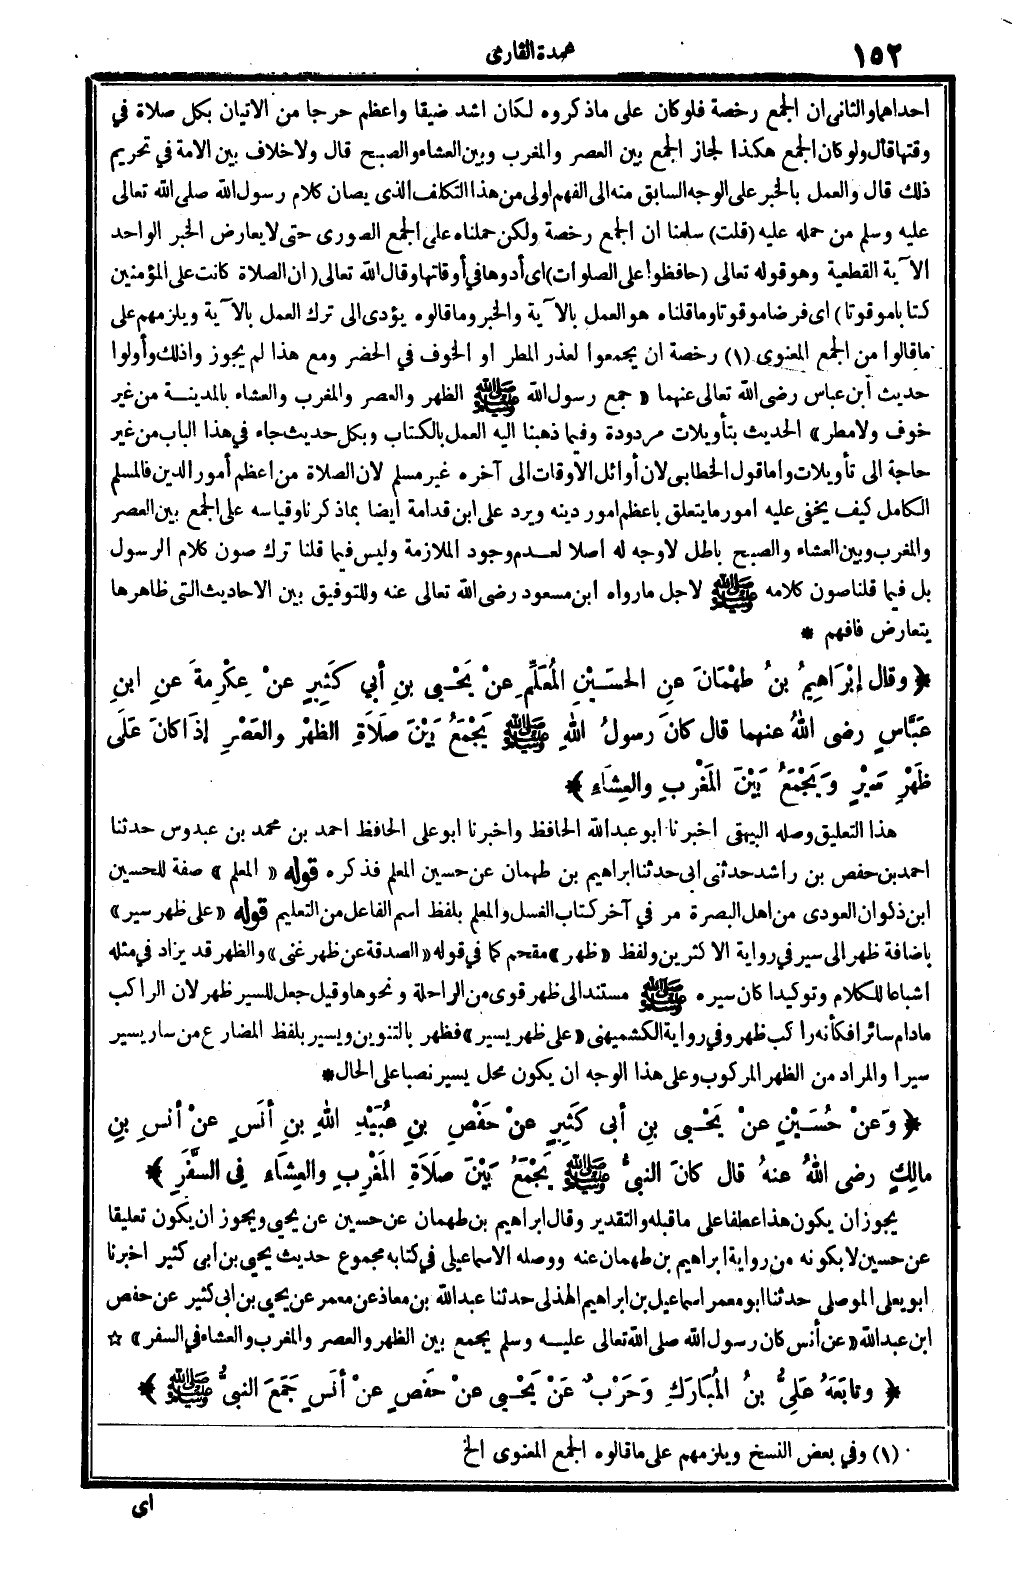 ١٥٢
عمدة القارئ
احداهما والثانى ان الجمع رخصة فلوكان على ماذكروه لكان اشد ضيقا واعظم حرجا من الاتيان بكل صلاة في
وقتها قال ولو كان الجمع هكذا لجاز الجمع بين العصر والمغرب وبين العشاء والصبح قال ولاخلاف بين الامة في تحريم
ذلك قال والعمل بالخبر على الوجه السابق منه الى الفهم اولى من هذا التكلف الذى يصان كلام رسول الله صلى الله تعالى
عليه وسلم من حمله عليه (قلت) سلمنا ان الجمع رخصة ولكن حملناه على الجمع الصورى حتى لا يعارض الخبر الواحد
الآية القطعية وهو قوله تعالى (حافظوا على الصلوات) اى أدوها في أوقاتها وقال الله تعالى (ان الصلاة كانت على المؤمنين
كتابا موقوتا) اى فرضا موقوتا وماقلناه هو العمل بالآية والخبر وماقالوه يؤدى الى ترك العمل بالآية ويلزمهم على
ماقالوا من الجمع المعنوى (١) رخصة ان يجمعوا لعذر المطر او الخوف في الحضر ومع هذا لم يجوز واذلك وأولوا
حديث ابن عباس رضى الله تعالى عنهما «جمع رسول الله ﷺ الظهر والعصر والمغرب والعشاء بالمدينة من غير
خوف ولامطر» الحديث بتأويلات مردودة وفيما ذهبنا اليه العمل بالكتاب وبكل حديث جاء في هذا الباب من غير
حاجة الى تأويلات واما قول الخطابى لان أوائل الاوقات الى آخره غير مسلم لان الصلاة من اعظم أمور الدين فالمسلم
الكامل كيف يخفى عليه امور ما يتعلق باعظم امور دينه ويرد على ابن قدامة أيضا بماذكرنا وقياسه على الجمع بين العصر
والمغرب وبين العشاء والصبح باطل لاوجه له اصلا لعدم وجود الملازمة وليس فيما قلنا ترك صون كلام الرسول
بل فيما قلنا صون كلامه ﷺ لاجل مارواه ابن مسعود رضى الله تعالى عنه وللتوفيق بين الاحاديث التى ظاهرها
يتعارض فافهم *
﴿ وقال إبْرَاهِيمُ بنُ طَهْمَانَ عنِ الحُسَيْنِ المُعَلِّمِ عنْ يَحْيى بنِ أبي كَثِيرٍ عنْ عِكْرِمَةَ عنِ ابنِ
عَبَّاسٍ رضى اللهُ عنهما قال كانَ رسولُ اللهِ ﷺ يَجْمَعُ بَيْنَ صَلَاةِ الظهْرِ والعَصْرِ إذَا كانَ عَلَى
ظَهْرِ سَيْرٍ وَيَجْمَعُ بَيْنَ المَغْرِبِ والعِشَاءِ ﴾
هذا التعليق وصله البيهقى اخبرنا ابو عبدالله الحافظ واخبرنا ابو على الحافظ احمد بن محمد بن عبدوس حدثنا
احمد بن حفص بن راشد حدثنى ابى حدثنا ابراهيم بن طهمان عن حسين المعلم فذكره قوله «المعلم» صفة للحسين
ابن ذكوان العودى من اهل البصرة مر في آخر كتاب الغسل والمعلم بلفظ اسم الفاعل من التعليم قوله «على ظهر سير»
باضافة ظهر الى سير في رواية الاكثرين ولفظ «ظهر» مقحم كما في قوله «الصدقة عن ظهر غنى» والظهر قد يزاد في مثله
اشباعا للكلام وتوكيدا كان سيره ﷺ مستندا لى ظهر قوى من الراحلة ونحوها وقيل جعل للسير ظهر لان الراكب
مادام سائرا فكأنه راكب ظهر وفي رواية الكشميهنى «على ظهر يسير» فظهر بالتنوين ويسير بلفظ المضارع من سار يسير
سيرا والمراد من الظهر المركوب وعلى هذا الوجه ان يكون محل يسير نصبا على الحال *
﴿ وَعنْ حُسَيْنٍ عنْ يَحْيى بنِ أبى كَثِيرٍ عنْ حَفْصِ بنِ عُبَيْدِ اللهِ بنِ أنَسٍ عنْ أنَسِ بنِ
مالِكٍ رضى اللهُ عنهُ قال كانَ النبىُّ ﷺ يَجْمَعُ بَيْنَ صَلَاةِ المَغْرِبِ والعِشَاءِ فِى السَّفَرِ ﴾
يجوز ان يكون هذا عطفا على ماقبله والتقدير وقال ابراهيم بن طهمان عن حسين عن يحيى ويجوز ان يكون تعليقا
عن حسين لا بكونه من رواية ابراهيم بن طهمان عنه ووصله الاسماعيلى في كتابه مجموع حديث يحيى بن ابى كثير اخبرنا
ابو يعلى الموصلى حدثنا ابو معمر اسماعيل بن ابراهيم الهذلى حدثنا عبدالله بن معاذ عن معمر عن يحيى بن ابى كثير عن حفص
ابن عبدالله «عن أنس كان رسول الله صلى الله تعالى عليه وسلم يجمع بين الظهر والعصر والمغرب والعشاء في السفر» ☆
﴿ وتابَعَهُ عَلِىُّ بنُ المُبَارَكِ وَحَرْبٌ عَنْ يَحْيى عنْ حَفْصٍ عنْ أنَسٍ جَمَعَ النبىُّ ﷺ ﴾
(١) وفي بعض النسخ ويلزمهم على ماقالوه الجمع المعنوى الخ
اى